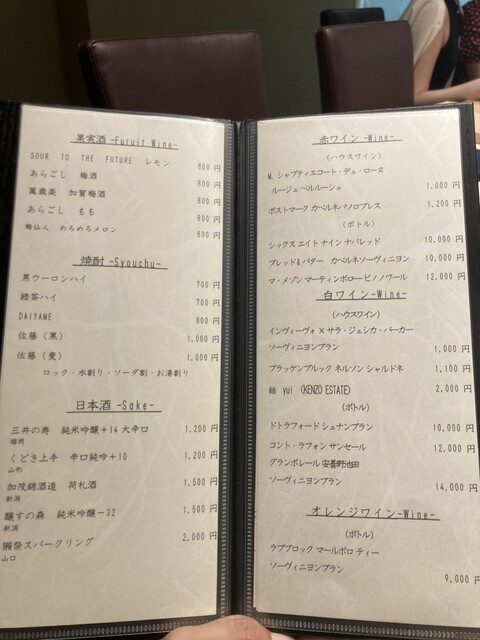 果実酒 -Furuit Wine-
SOUR TO THE FUTURE レモン 800 円
あらごし 梅酒 800 円
萬歳楽 加賀梅酒 800 円
あらごし もも 800 円
梅仙人 めろめろメロン 800 円
焼酎 -Syouchu-
黒ウーロンハイ 700 円
緑茶ハイ 700 円
DAIYAME 800 円
佐藤（黒） 1,000 円
佐藤（麦） 1,000 円
ロック・水割り・ソーダ割・お湯割り
日本酒 -Sake-
三井の寿 純米吟醸+14 大辛口 1,200 円
福岡
くどき上手 辛口純吟+10 1,200 円
山形
加茂錦酒造 荷札酒 1,500 円
新潟
醸すの森 純米吟醸-32 1,500 円
新潟
獺祭スパークリング 2,000 円
山口
赤ワイン -Wine-
（ハウスワイン）
M. シャプティエコート・デュ・ローヌ
ルージュ ベルルーシュ 1,000 円
ポストマーク カベルネパソロブレス 1,200 円
（ボトル）
シックス エイト ナイン ナパレッド 10,000 円
ブレッド&バター カベルネソーヴィニヨン 10,000 円
マ・メゾン マーティンボロー ピノノワール 12,000 円
白ワイン-Wine-
（ハウスワイン）
インヴィーヴォ × サラ・ジェシカ・パーカー
ソーヴィニヨンブラン 1,000 円
ブラッケンブルック ネルソン シャルドネ 1,100 円
結 yui （KENZO ESTATE） 2,000 円
（ボトル）
ドトラフォード シュナンブラン 10,000 円
コント・ラフォン サンセール 12,000 円
グランポレール 安曇野池田
ソーヴィニヨンブラン 14,000 円
オレンジワイン-Wine-
（ボトル）
ラブブロック マールボロ ティー
ソーヴィニヨンブラン 9,000 円